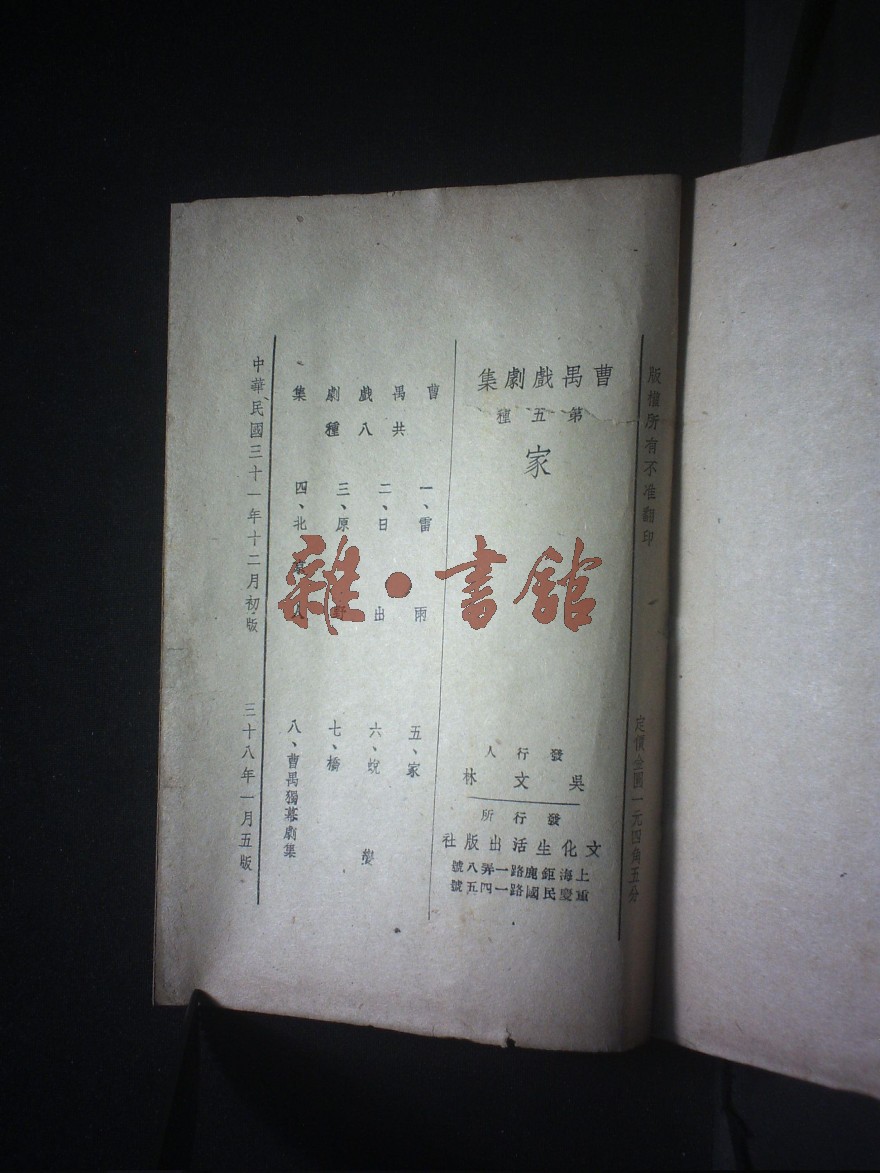 版權所有不准翻印
定價金圓一元四角五分
曹禺戲劇集
第五種
家
發行人
吳文林
發行所
文化生活出版社
上海鉅鹿路一弄八號
重慶民國路一四五號
曹禺戲劇集
共八種
一、雷雨
二、日出
三、原野
四、北京人
五、家
六、蛻變
七、橋
八、曹禺獨幕劇集
中華民國三十一年十二月初版
三十八年一月五版
雜·書館